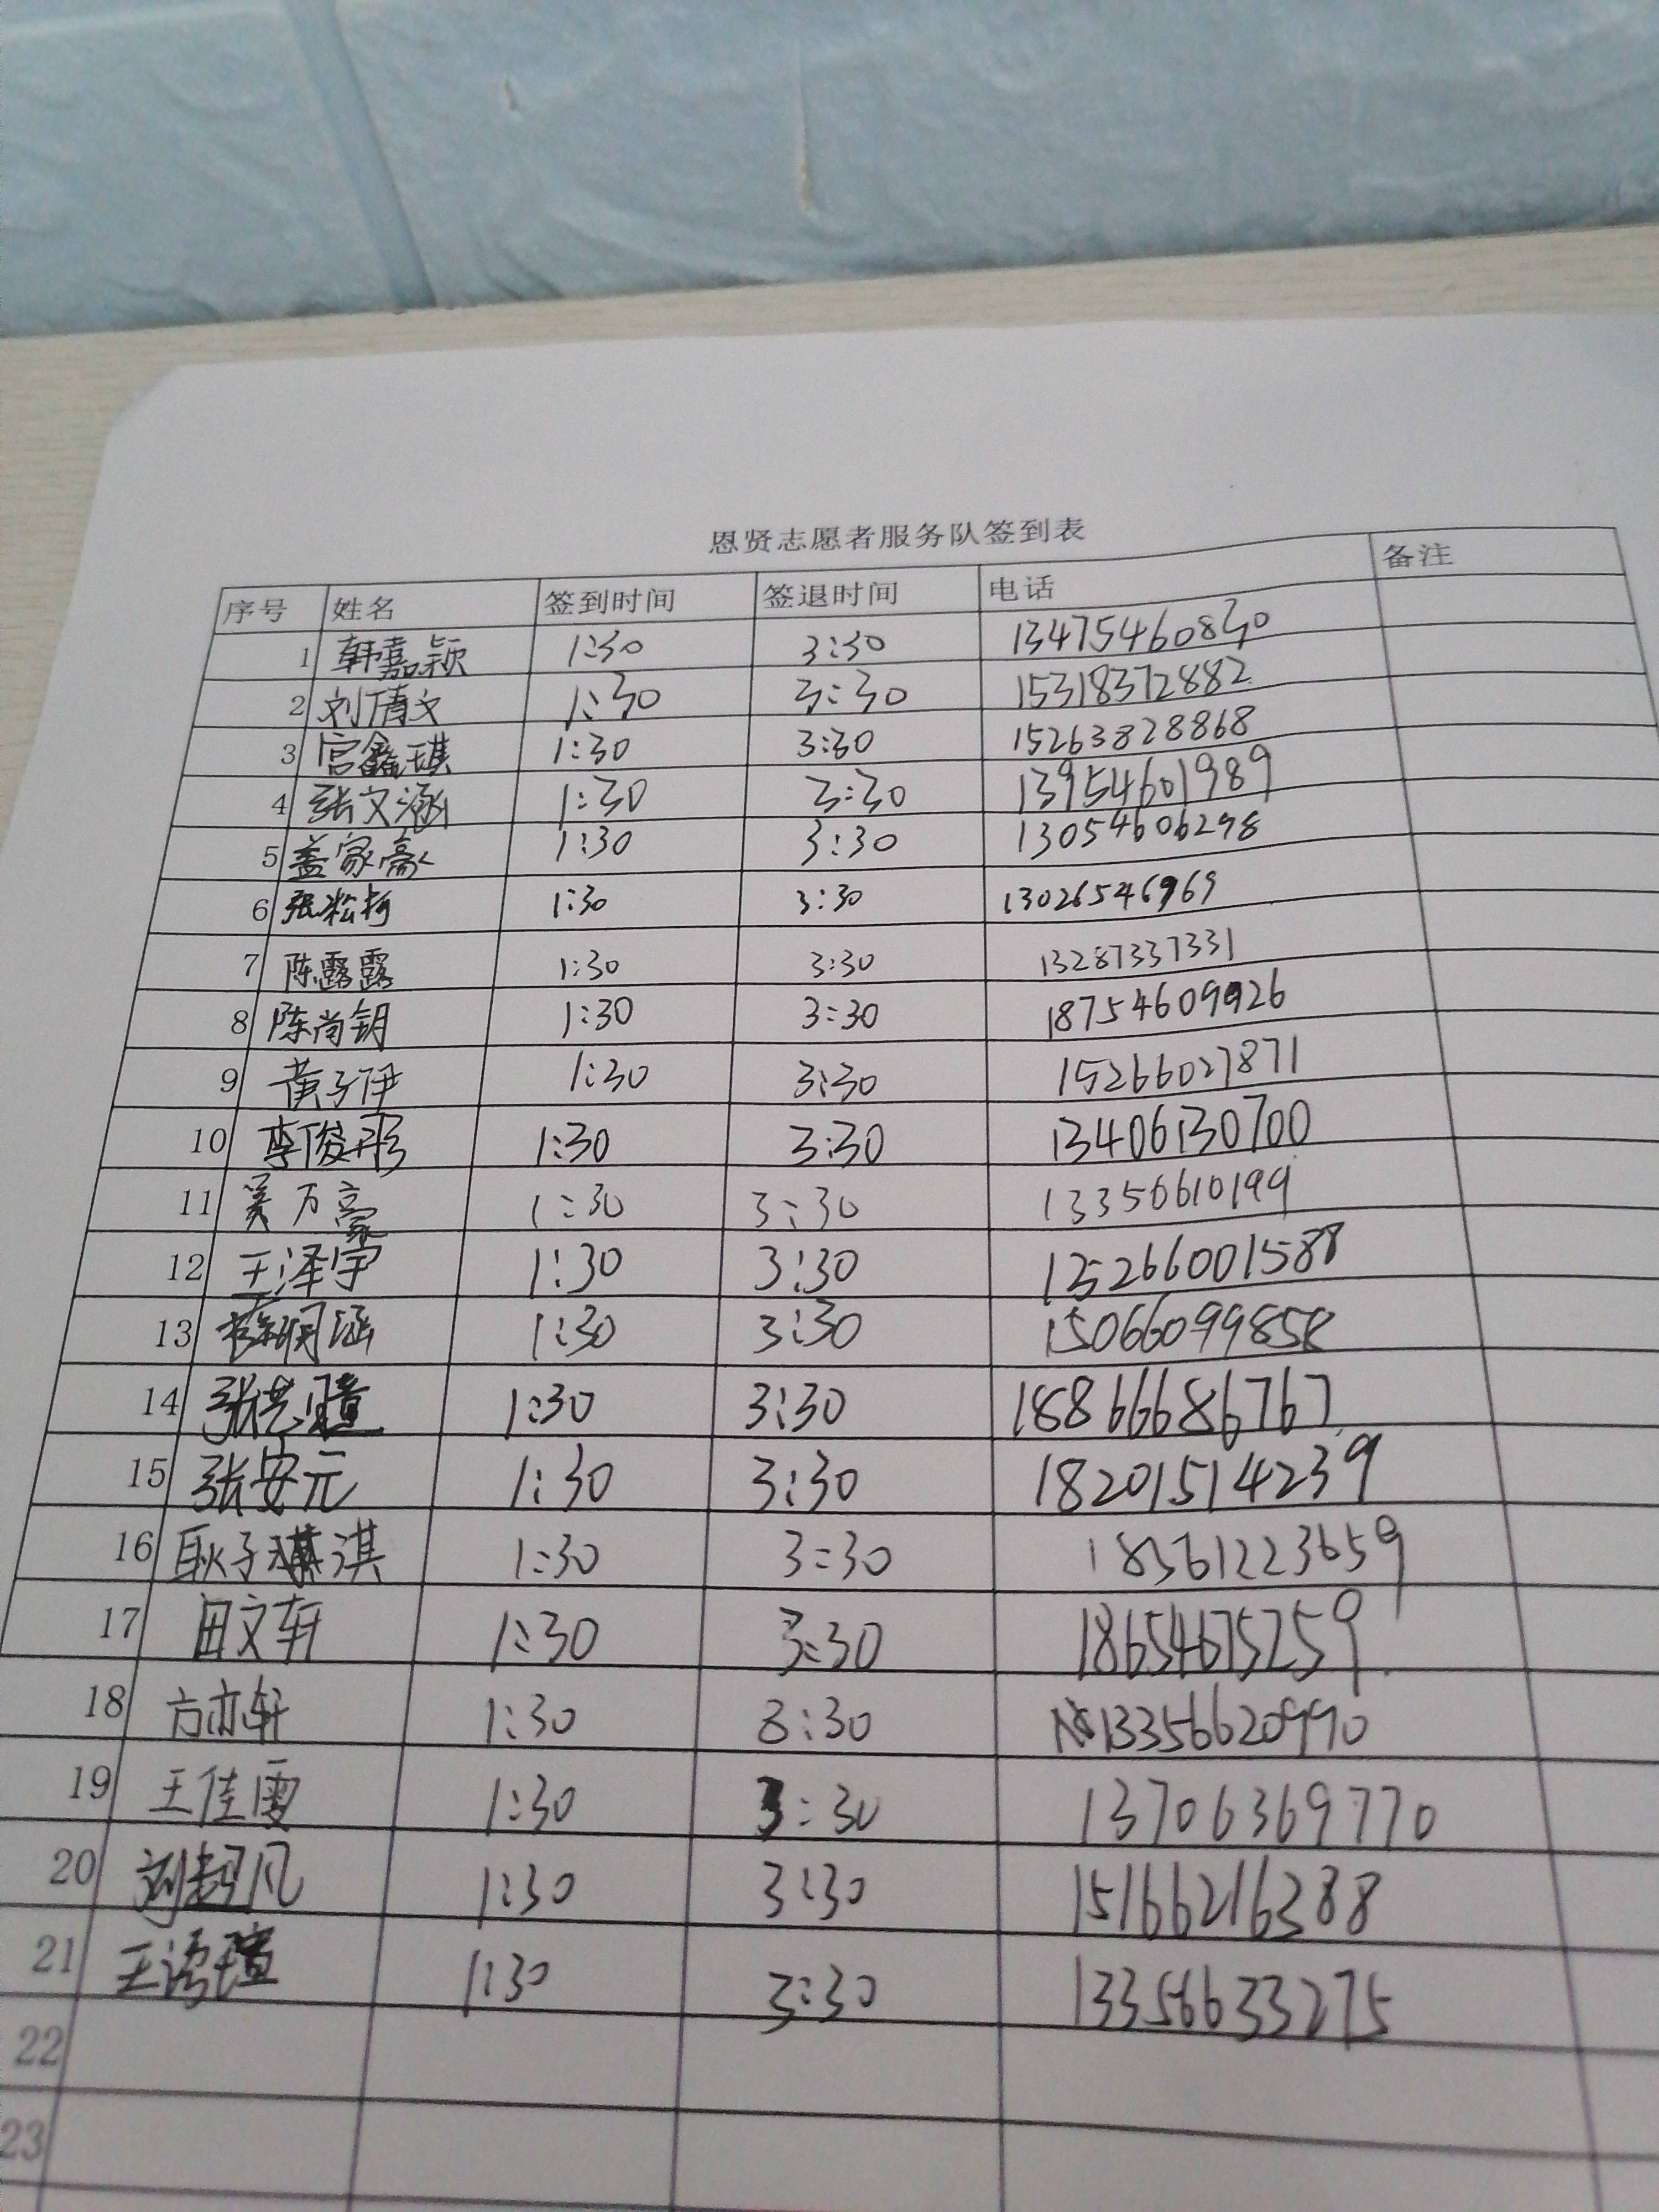 恩贤志愿者服务队签到表
序号 姓名 签到时间 签退时间 电话 备注
1 韩嘉颖 1:30 3:30 13475460830
2 刘倩文 1:30 3:30 15318372882
3 宫鑫琪 1:30 3:30 15263828868
4 张文涵 1:30 3:30 13954601989
5 盖家豪 1:30 3:30 13054606298
6 张松柯 1:30 3:30 13026546969
7 陈露露 1:30 3:30 13287337331
8 陈尚钥 1:30 3:30 18754609926
9 黄子伊 1:30 3:30 15266027871
10 李俊彤 1:30 3:30 13406130700
11 吴万豪 1:30 3:30 13350610199
12 王泽宇 1:30 3:30 15266001588
13 1:30 3:30 15066099858
14 1:30 3:30 18866686767
15 张安元 1:30 3:30 18201514239
16 耿子淇 1:30 3:30 18561223659
17 田文轩 1:30 3:30 18654675259
18 方亦轩 1:30 3:30 13356620990
19 王佳雯 1:30 3:30 13706369770
20 刘超凡 1:30 3:30 15166216388
21 王语瑄 1:30 3:30 13356633275
22
23